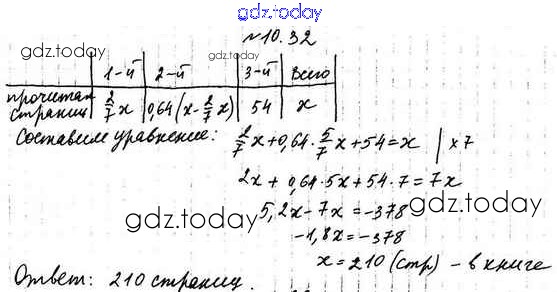 gdz.today
№10.32
gdz.today
gdz.today
1-й 2-й 3-й Всего
прочитан страниц 2/7 x 0,64(x-2/7 x) 54 x
Составим уравнение: 2/7 x+0,64·5/7 x+54=x | x7
2x+0,64·5x+54·7=7x
gdz.today
5,2x-7x=-378
gdz.today
-1,8x=-378
x=210 (стр) - в книге
Ответ: 210 страниц.